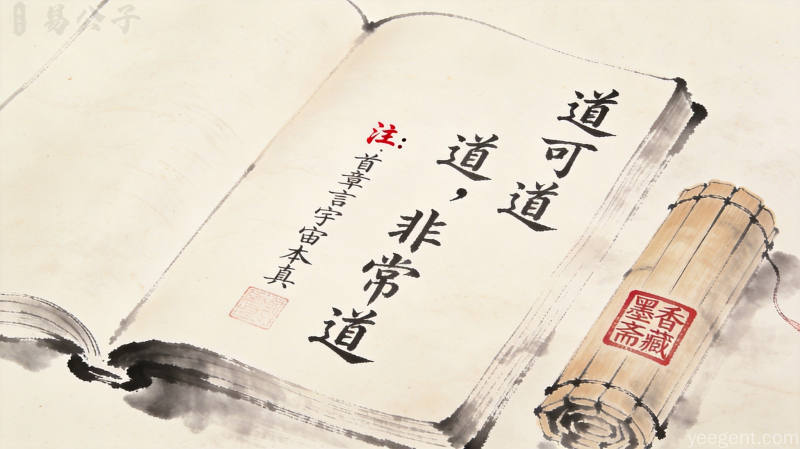 道可道
道，非常道
注：
首章言宇宙本真
香藏
墨斋
易公子
yeegent.com